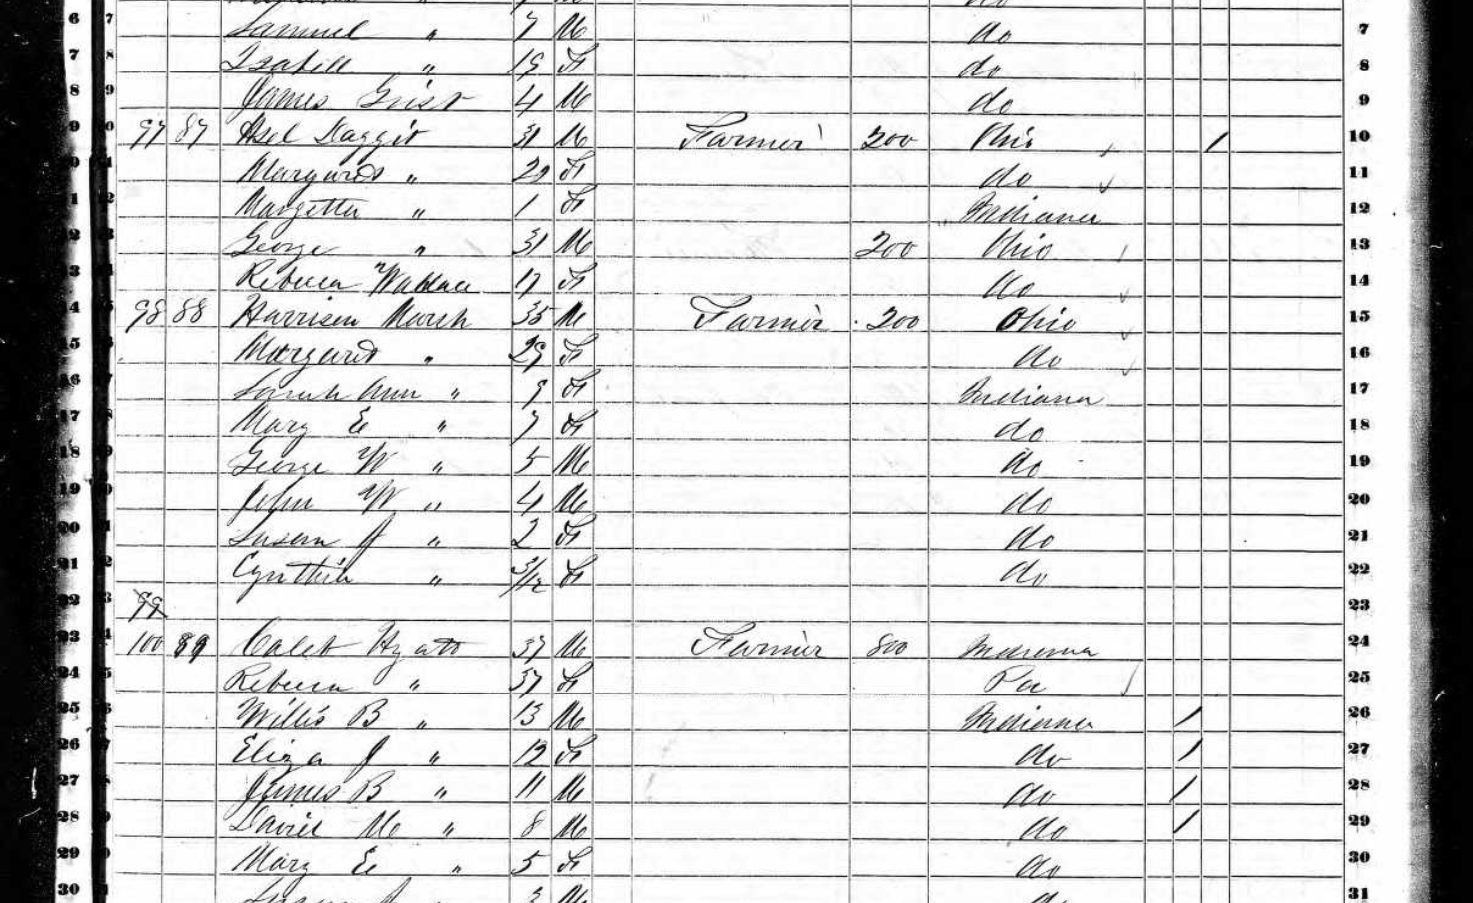 6 7 Samuel " 7 M do 7
7 8 Isabell " 19 F do 8
8 9 James Grist 4 M do 9
9 0 97 87 Asel Daggit 31 M Farmer 200 Ohio / 10
1 Margaret " 29 F do 11
1 2 Margetta " 1 F Indiana 12
2 3 George " 31 M 200 Ohio 13
3 Rebecca Wallace 17 F do 14
4 98 88 Harrison Marsh 35 M Farmer 200 Ohio 15
15 Margaret " 29 F do 16
16 Sarah Ann " 9 F Indiana 17
17 Mary E " 7 F do 18
18 George W " 5 M do 19
19 John W " 4 M do 20
20 Susan J " 2 F do 21
21 2 Cynthia " 3/12 F do 22
22 3 99 23
23 100 89 Caleb Hyatt 37 M Farmer 800 Indiana 24
24 Rebecca " 37 F Pa 25
25 Willis B " 13 M Indiana / 26
26 Eliza J " 12 F do / 27
27 James B " 11 M do / 28
28 David M " 8 M do / 29
29 Mary E " 5 F do 30
30 3 M do 31